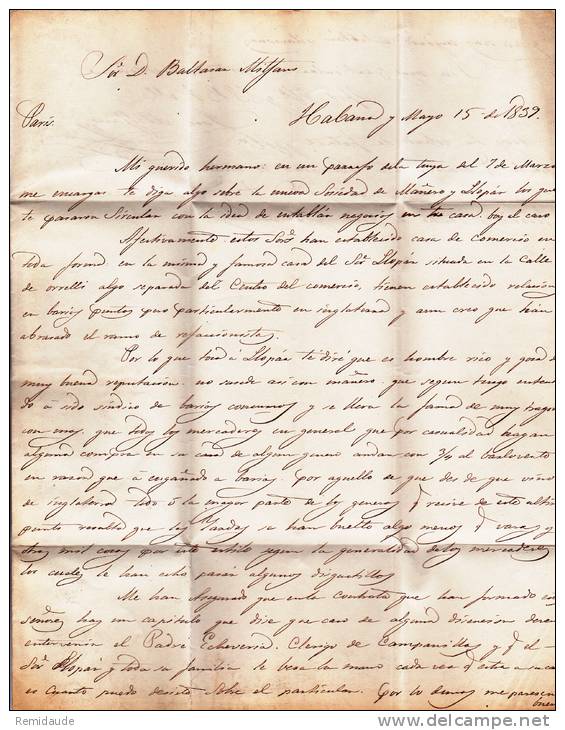 Sōr D. Baltasar Mitjans
Paris.
Habana y Mayo 15 de 1839.
Mi querido hermano: en un paraefo dela tuya del 7 de Marzo
me encargas te diga algo sobre la nueva Sociedad de Mañero y Llopár los que
te pasaron Sircular con la idea de entablár negosios en tu casa. boy el caso
Afectivamente estos Sorˢ han establesido casa de Comersio en
toda forma en la misma y famosa casa del Sōr Llopár situada en la Calle
de orreilli algo separada del Centro del comersio, tienen establesido relasion
en barios puntos pero particularmente en inglaterra y aun creo que hán
abrasado el ramo de refaccionista.
Por lo que toca à Llopár te diré que es hombre rico y gosa de
muy buena reputasion. no susede asi con mañero. que segun tengo entend
do à sido sindico de barios concursos y se lleva la fama de muy
con mas. que todos los mercaderes en general que por casualidad hagan
alguna compra en su casa de algun genero andan con 3/4 al barlovento
en razon que à engañado à barios. por aquello de que des de que vino
de inglaterra todo ò la mayor parte de los generos q̄ resive de este ultim
punto resulta que las Yardas se han buelto algo menos q̄ varas y
otras mil cosas por este estilo segun la generalidad de los mercaderes
los cuales le han echo pasár algunos disgustillos
Me han asegurado que enla contrata que han formado esos
señores hay un capitulo que dise que caso de alguna disension devera
entervenir el Padre Echeverria. Clerigo de Campanillas y q̄ el
Sōr Llopár y toda su familia le besa la mano cada ves q̄ entra a su casa
es Cuanto puedo desirte sobre el particular. Por lo demas me parese
buen
Remidaude
delcampe.net